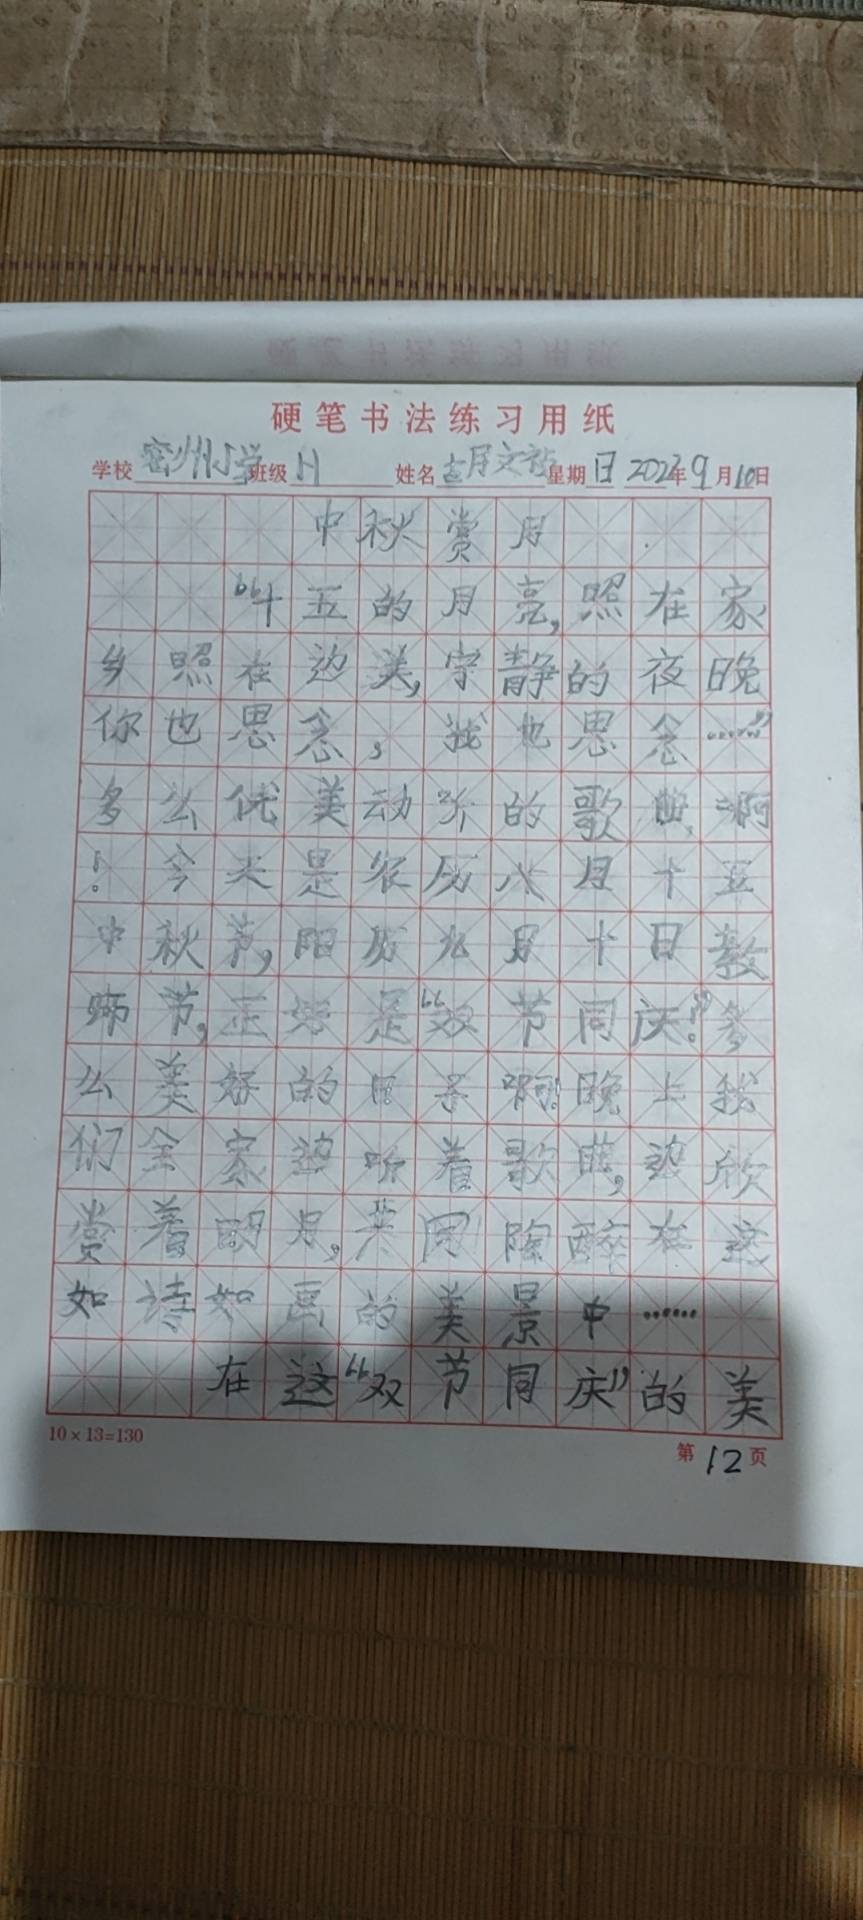 硬笔书法练习用纸
学校 密州小学 班级 姓名 星期 日 2022年9月10日
中秋赏月
“十五的月亮,照在家
乡照在边关,宁静的夜晚
你也思念,我也思念……”
多么优美动听的歌曲,啊
!今天是农历八月十五
中秋节,阳历九月十日教
师节,正好是“双节同庆!”多
么美好的日子啊!晚上我
们全家边听着歌曲,边欣
赏着明月,共同陶醉在这
如诗如画的美景中……
在这“双节同庆”的美
10×13=130
第12页